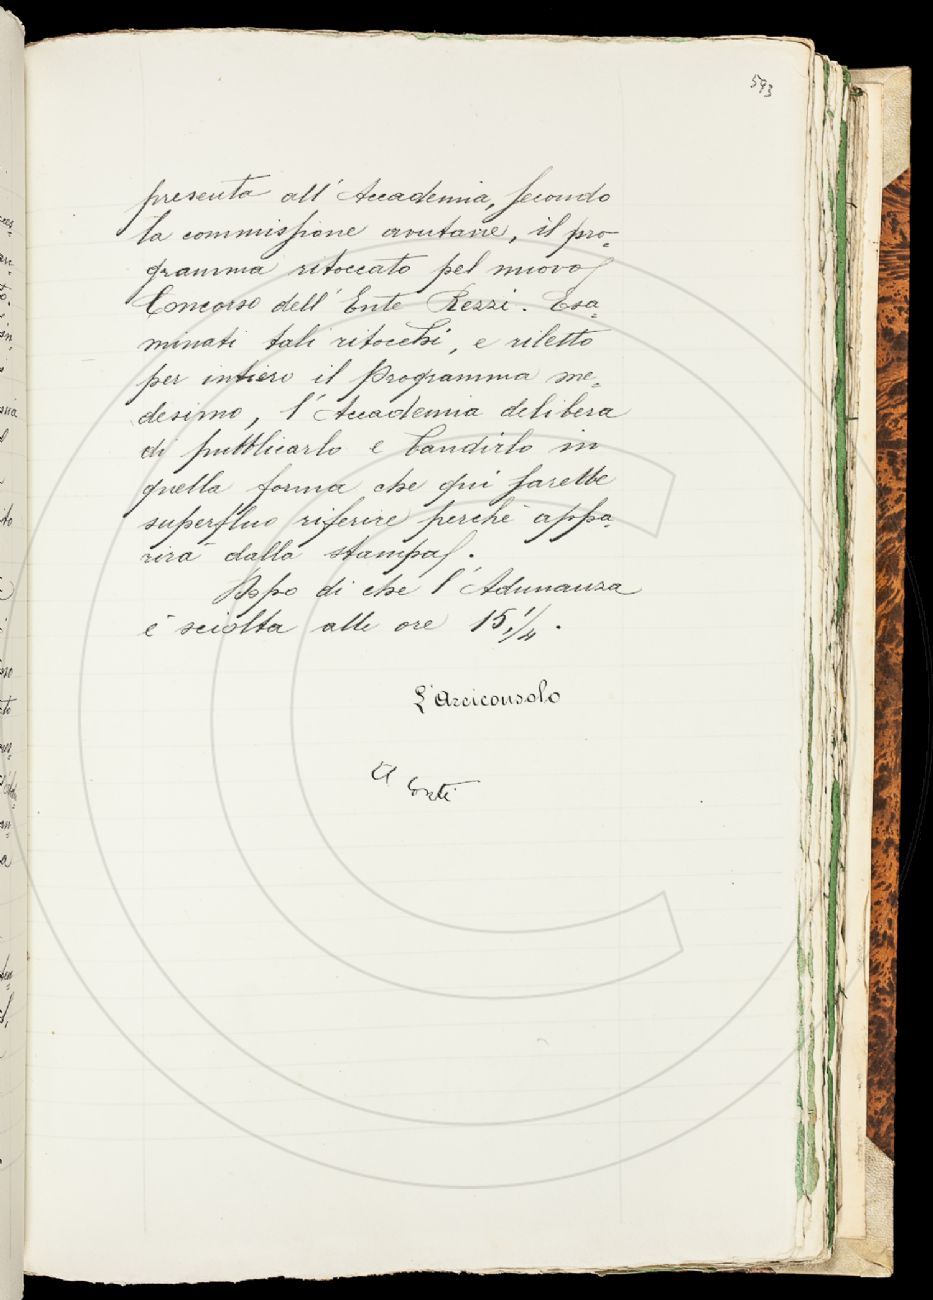 593
presenta all'Accademia, secondo
la commissione avutane, il pro=
gramma ritoccato pel nuovo
Concorso dell'Ente Rezzi. Esa=
minati tali ritocchi, e riletto
per intiero il Programma me=
desimo, l'Accademia delibera
di pubblicarlo e bandirlo in
quella forma che qui sarebbe
superfluo riferire perchè appa=
rirà dalla stampa.
Dopo di che l'Adunanza
è sciolta alle ore 15 1/4.
L'Arciconsolo
A Conti